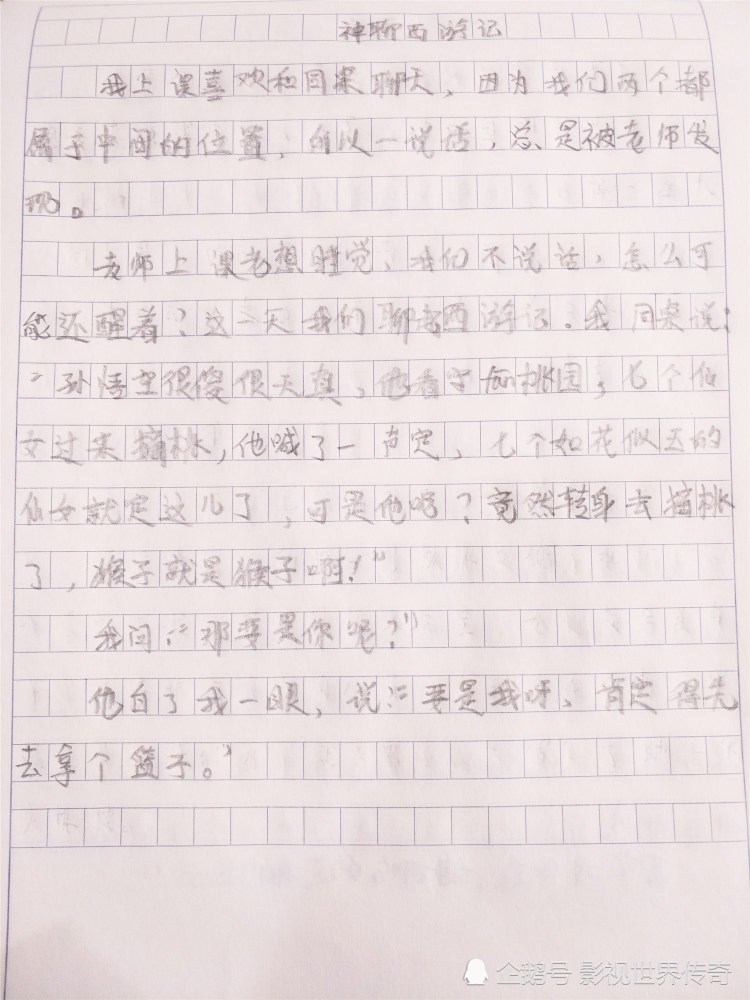 神聊西游记
我上课喜欢和同桌聊天，因为我们两个都
属于中间的位置，所以一说话，总是被老师发
现。
老师上课老想睡觉，我们不说话，怎么可
能还醒着？这一天我们聊起西游记。我同桌说：
“孙悟空很傻很天真，他看守蟠桃园，七个仙
女过来摘桃，他喊了一声定，七个如花似玉的
仙女就定这儿了，可是他呢？竟然转身去摘桃
了，猴子就是猴子啊！”
我问：“那要是你呢？”
他白了我一眼，说：“要是我呀，肯定得先
去拿个篮子。”
企鹅号 影视世界传奇